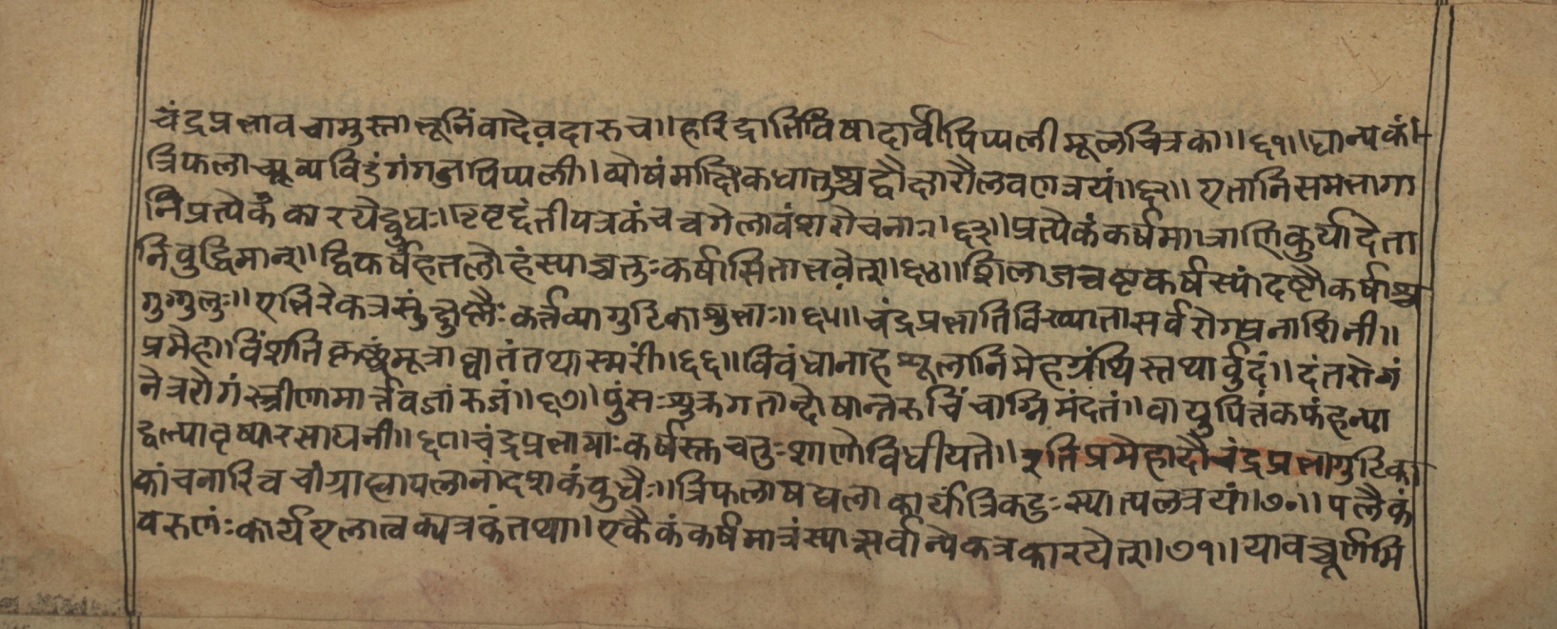 चंद्रप्रभावचामुस्ताभूनिंवादेवदारुच॥हरिद्रातिविषादार्वीपिप्पलीमूलचित्रका॥६१॥धान्यकं।
त्रिफलाचव्यविडंगंगजपिप्पली॥व्योषंमाक्षिकधातुश्चद्वौक्षारौलवणत्रयं॥६२॥एतानिसमभागा
निप्रत्येकंकारयेद्बुधः॥तृवृद्दंतीपत्रकंचत्वगेलावंशरोचनाः॥६३॥प्रत्येकंकर्षमात्राणिकुर्यादेता
निवुद्धिमान्॥द्विकर्षंहतलोहंस्याच्चतुःकर्षासिताभवेत्॥६४॥शिलाजत्वष्टकर्षस्यादष्टौकर्षाश्च
गुग्गुलुः॥एभिरेकत्रसुंक्षुण्णैःकर्तव्यागुटिकाशुभाः॥६५॥चंद्रप्रभातिविख्यातासर्वरोगप्रनाशिनी॥
प्रमेहाविंशतिकृछ्रंमूत्राघातंतथास्मरीं॥६६॥विवंधानाहशूलानिमेहग्रंथिस्तथार्वुदं॥दंतरोगं
नेत्ररोगंस्त्रीणामार्त्तवजांरुजं॥६७॥पुंसःशुक्रगतान्दोषान्तरुचिंचाग्निमंदतं॥वायुपित्तंकफंहन्या
द्वल्यावृष्यारसायनी॥६८॥चंद्रप्रभायाःकर्षस्तुचतुःशाणोविधीयते॥इतिप्रमेहादौचंद्रप्रभागुटिका
कांचनारित्वचोग्राह्यापलानांदशकंवुधैः॥त्रिफलाषट्पलाकार्यात्रिकटुःस्यात्पलत्रयं॥७०॥पलैकं
वरुणंःकार्यएलात्वक्पत्रकंतथा॥एकैकंकर्षमात्रंस्यात्सर्वान्येकत्रकारयेत्॥७१॥यावच्चूर्णमि